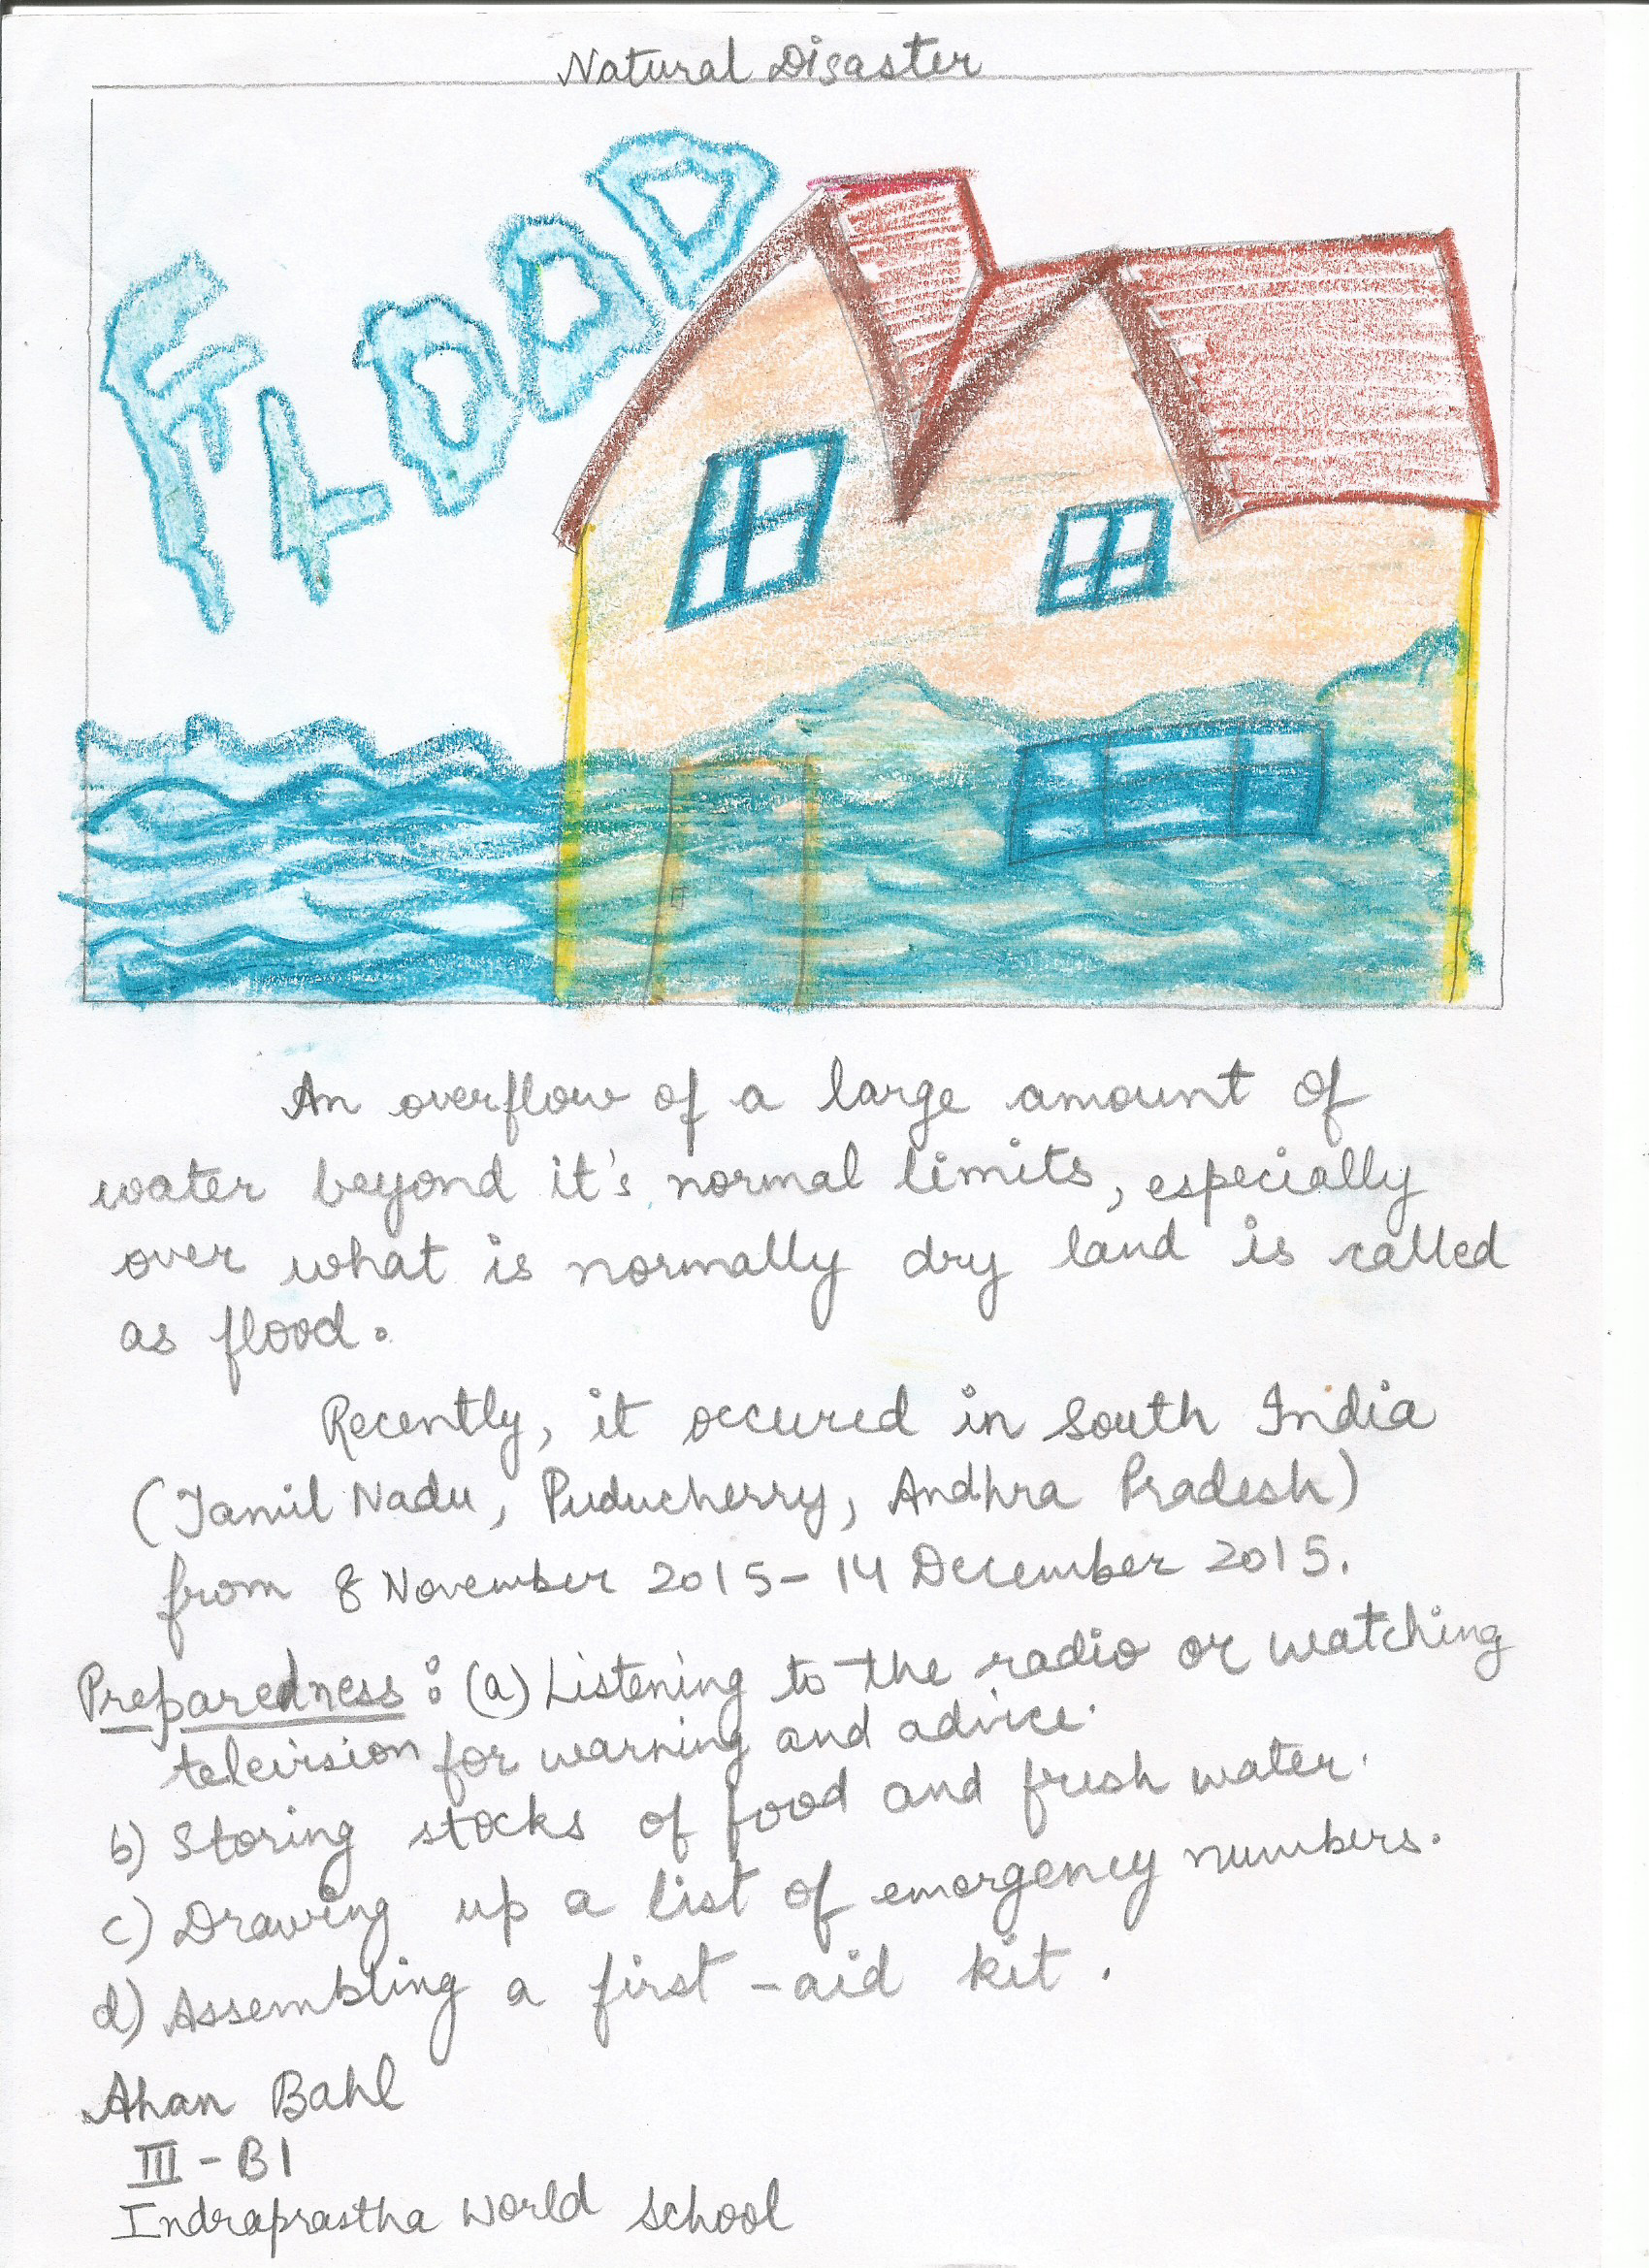 Natural Disaster
FLOOD
An overflow of a large amount of
water beyond it's normal limits, especially
over what is normally dry land is called
as flood.
Recently, it occured in South India
(Tamil Nadu, Puducherry, Andhra Pradesh)
from 8 November 2015 - 14 December 2015.
Preparedness : (a) Listening to the radio or watching
television for warning and advice.
b) Storing stocks of food and fresh water.
c) Drawing up a list of emergency numbers.
d) Assembling a first - aid kit.
Ahan Bahl
III - B1
Indraprastha World School